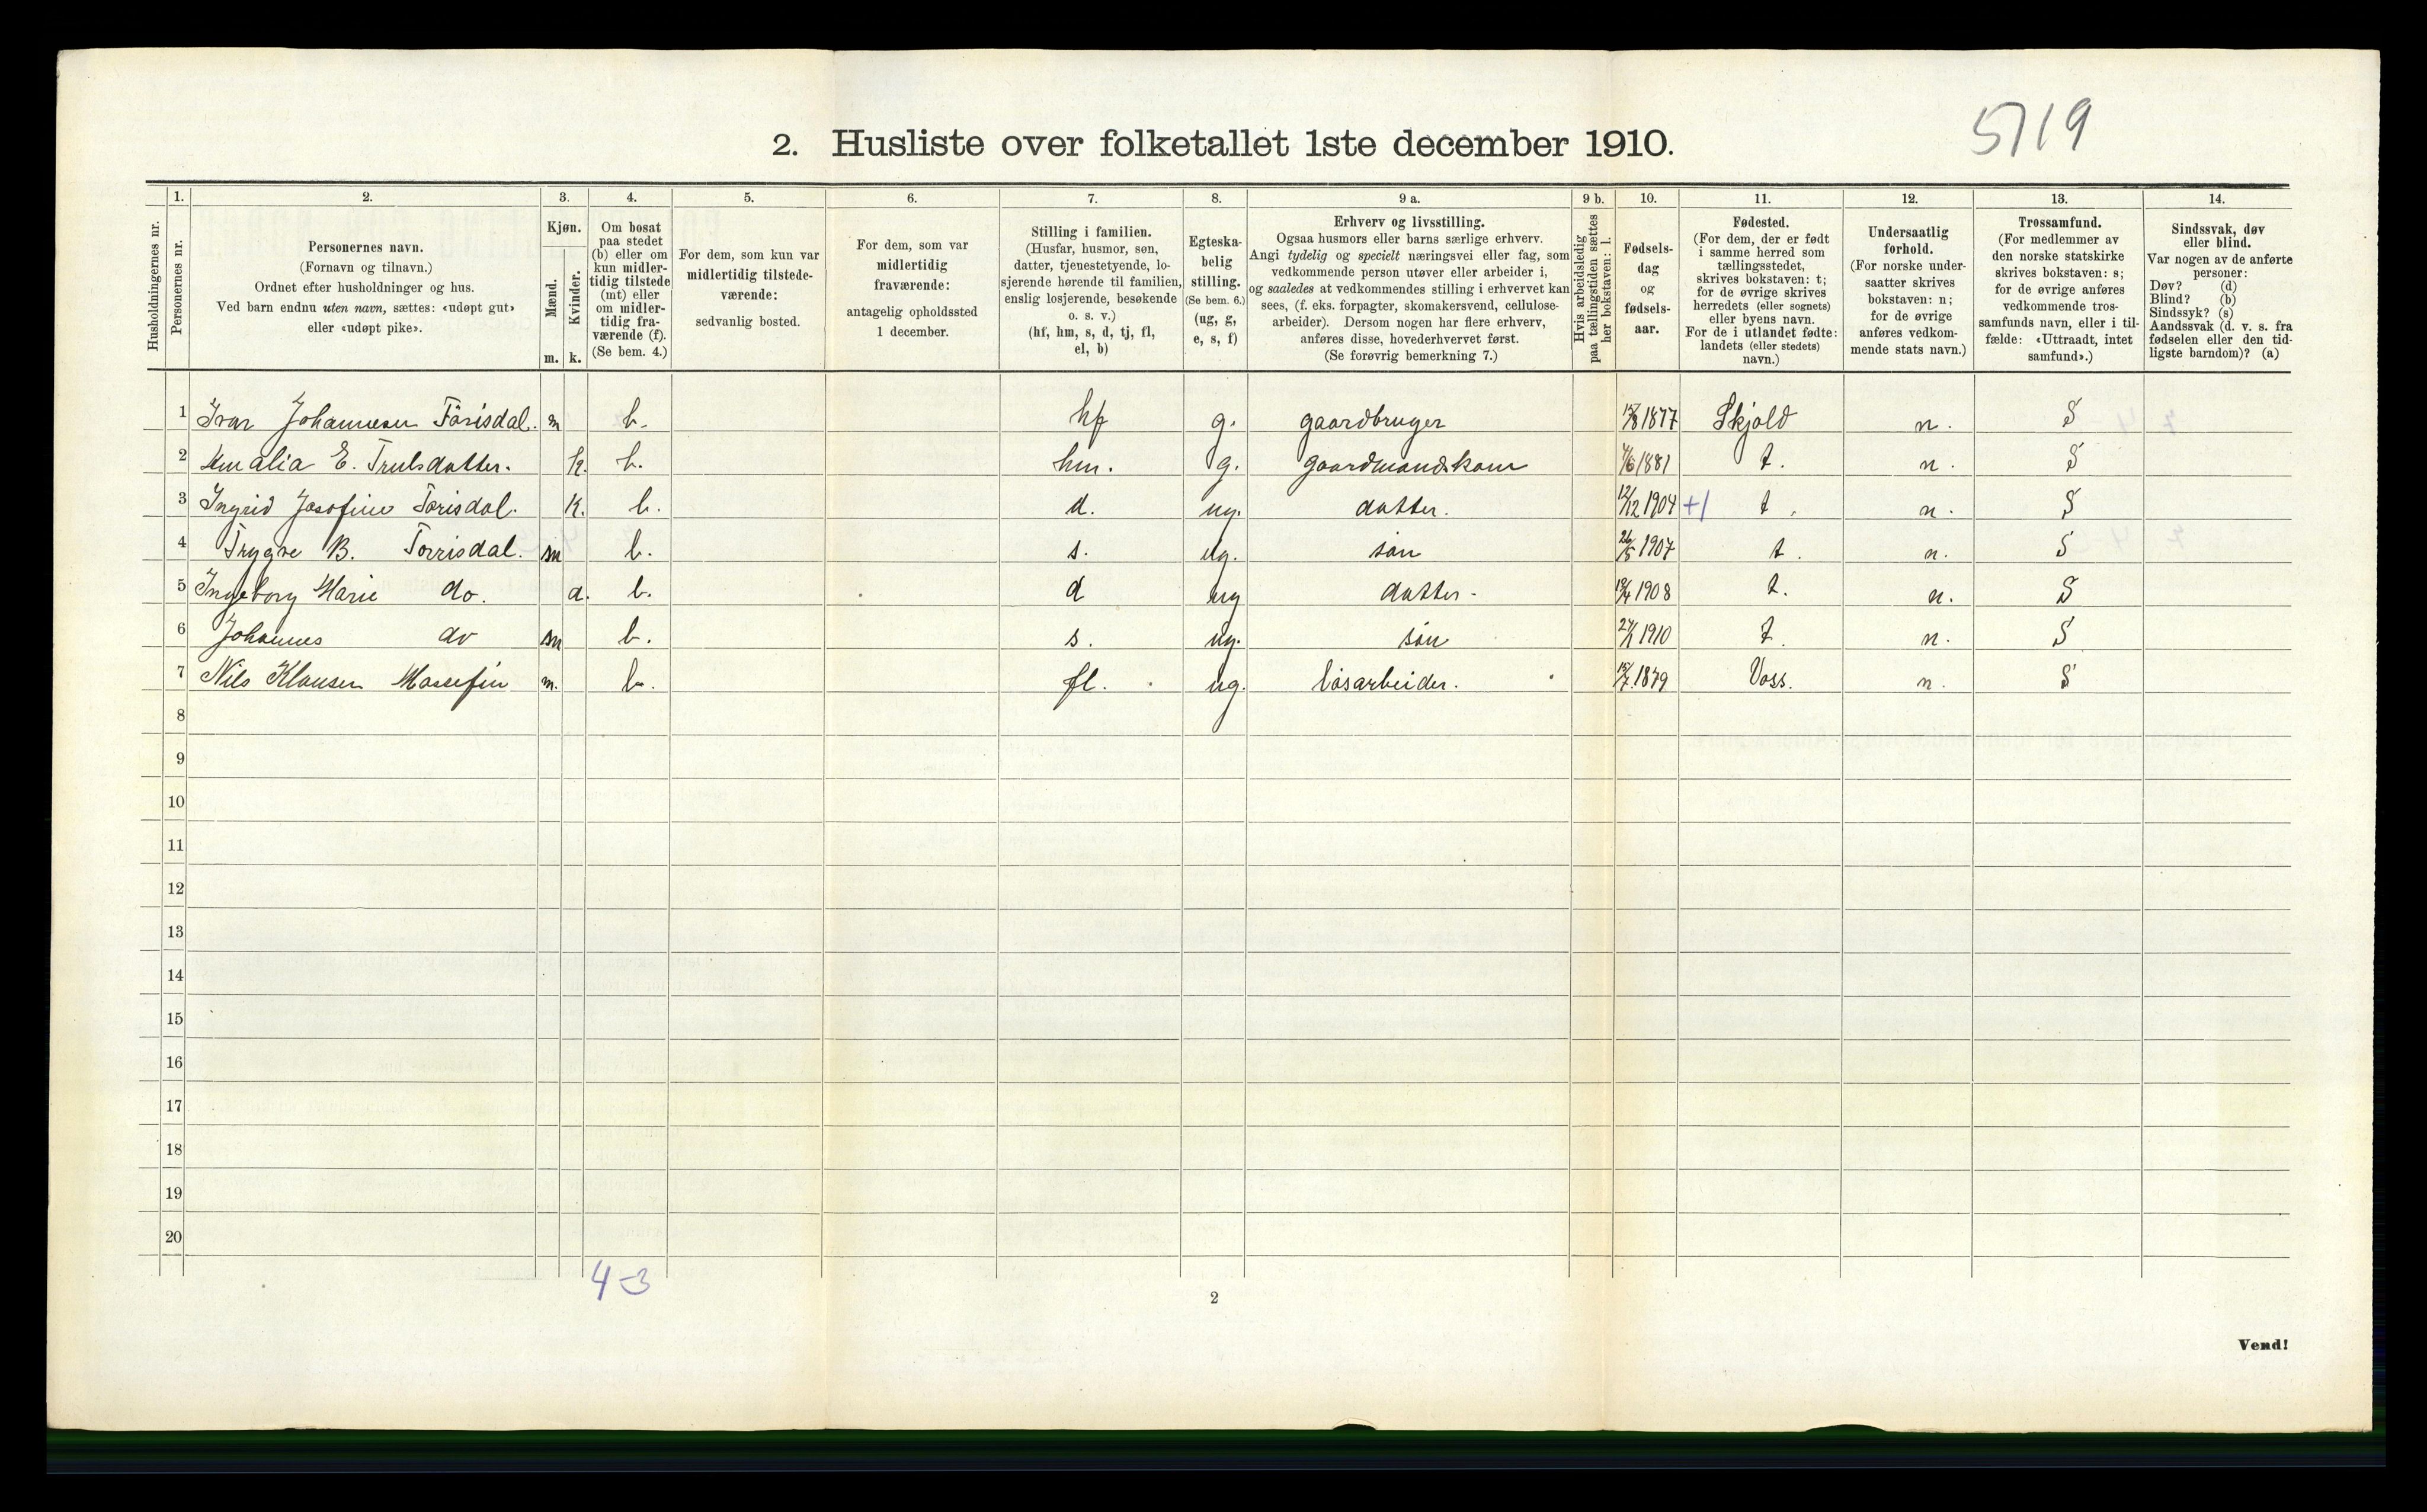 5719
2. Husliste over folketallet 1ste december 1910.
1. 2. 3. 4. 5. 6. 7. 8. 9 a. 9 b. 10. 11. 12. 13. 14.
Husholdningernes nr.
Personernes nr.
Personernes navn.
(Fornavn og tilnavn.)
Ordnet efter husholdninger og hus.
Ved barn endnu uten navn, sættes: «udøpt gut»
eller «udøpt pike».
Kjøn.
Mænd.
Kvinder.
m. k.
Om bosat
paa stedet
(b) eller om
kun midler-
tidig tilstede
(mt) eller
om midler-
tidig fra-
værende (f).
(Se bem. 4.)
For dem, som kun var
midlertidig tilstede-
værende:
sedvanlig bosted.
For dem, som var
midlertidig
fraværende:
antagelig opholdssted
1 december.
Stilling i familien.
(Husfar, husmor, søn,
datter, tjenestetyende, lo-
sjerende hørende til familien,
enslig losjerende, besøkende
o. s. v.)
(hf, hm, s, d, tj, fl,
el, b)
Egteska-
belig
stilling.
(Se bem. 6.)
(ug, g,
e, s, f)
Erhverv og livsstilling.
Ogsaa husmors eller barns særlige erhverv.
Angi tydelig og specielt næringsvei eller fag, som
vedkommende person utøver eller arbeider i,
og saaledes at vedkommendes stilling i erhvervet kan
sees, (f. eks. forpagter, skomakersvend, cellulose-
arbeider). Dersom nogen har flere erhverv,
anføres disse, hovederhvervet først.
(Se forøvrig bemerkning 7.)
Hvis arbeidsledig
paa tællingstiden sættes
her bokstaven: l.
Fødsels-
dag
og
fødsels-
aar.
Fødested.
(For dem, der er født
i samme herred som
tællingsstedet,
skrives bokstaven: t;
for de øvrige skrives
herredets (eller sognets)
eller byens navn.
For de i utlandet fødte:
landets (eller stedets)
navn.)
Undersaatlig
forhold.
(For norske under-
saatter skrives
bokstaven: n;
for de øvrige
anføres vedkom-
mende stats navn.)
Trossamfund.
(For medlemmer av
den norske statskirke
skrives bokstaven: s;
for de øvrige anføres
vedkommende tros-
samfunds navn, eller i til-
fælde: «Uttraadt, intet
samfund».)
Sindssvak, døv
eller blind.
Var nogen av de anførte
personer:
Døv? (d)
Blind? (b)
Sindssyk? (s)
Aandssvak (d. v. s. fra
fødselen eller den tid-
ligste barndom)? (a)
1 Ivar Johannesen Törisdal. m b. hf g. gaardbruger 1877 Skjold n. S
2 Amalia E. Trulsdatter. k. b. hm. g. gaardmandskone 4/6 1881 t. n. S
3 Ingrid Josefine Torisdal. k. b. d. ug. datter. 12/12 1904 +1 t. n. S
4 Trygve B. Torrisdal. m b. s. ug. søn 26/5 1907 t. n. S
5 Ingeborg Marie do. d. b. d ug datter - 1908 t. n. S
6 Johannes do m b. s. ug. søn 1910 t. n. S
7 Nils Klausen m. b. fl. ug. løsarbeider. 15/7 1879 Voss. n. S
8
9
10
11
12
13
14
15
16
17
18
19
20
4-3
2
Vend!